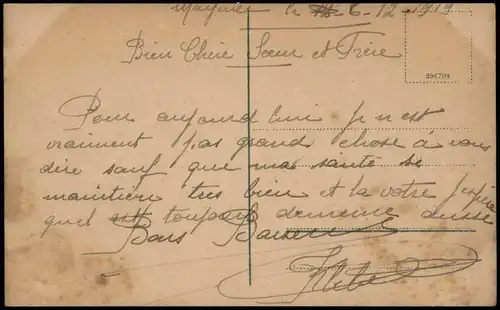 le 6-12-1919
Bien Chère Sœur et Frère
298708
Pour aujourd hui je n est
vraiment pas grand chose à vous
dire sauf que ma santé se
maintien tres bien et la votre j'espère
quel toujours demeure aussi
Bons Baisers